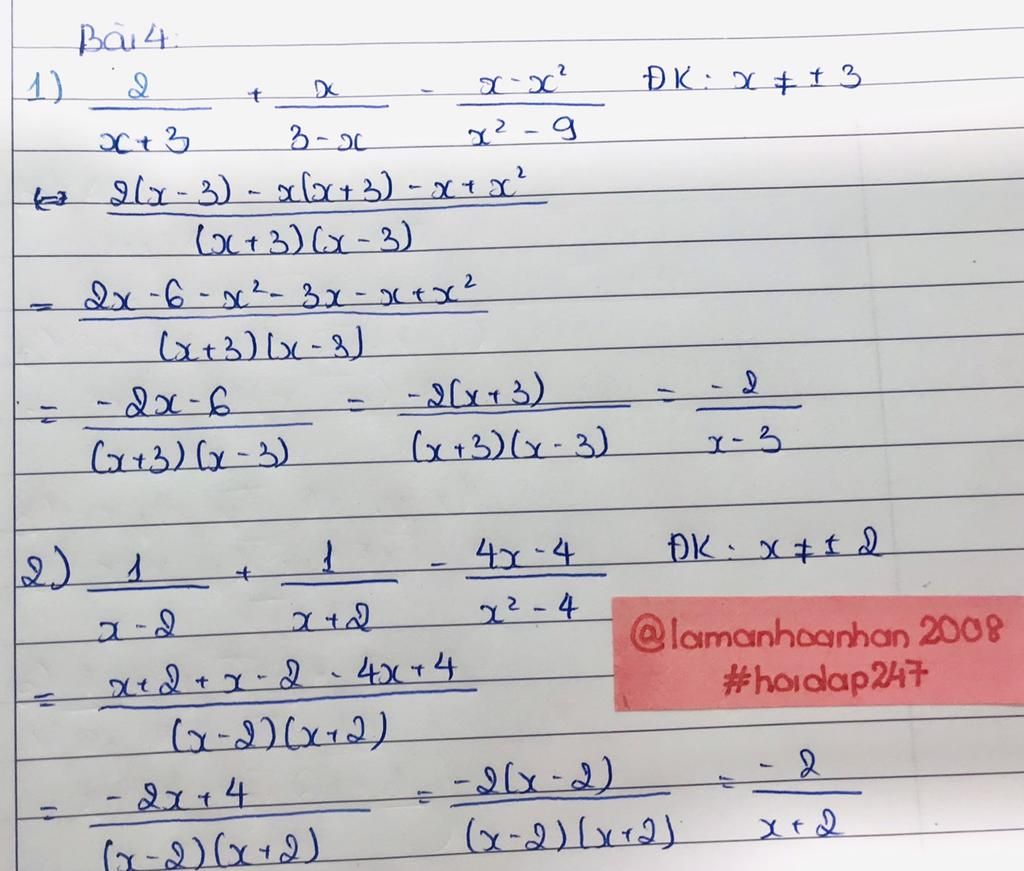 Bài 4:
1) 2/(x+3) + x/(3-x) - (x-x²)/(x²-9) ĐK: x ≠ ± 3
<=> (2(x-3) - x(x+3) - x + x²)/((x+3)(x-3))
= (2x-6-x²-3x-x+x²)/((x+3)(x-3))
= (-2x-6)/((x+3)(x-3)) = (-2(x+3))/((x+3)(x-3)) = (-2)/(x-3)
2) 1/(x-2) + 1/(x+2) - (4x-4)/(x²-4) ĐK: x ≠ ± 2
= (x+2+x-2-4x+4)/((x-2)(x+2))
= (-2x+4)/((x-2)(x+2)) = (-2(x-2))/((x-2)(x+2)) = (-2)/(x+2)
@lamanhoanhan 2008
#hoidap247